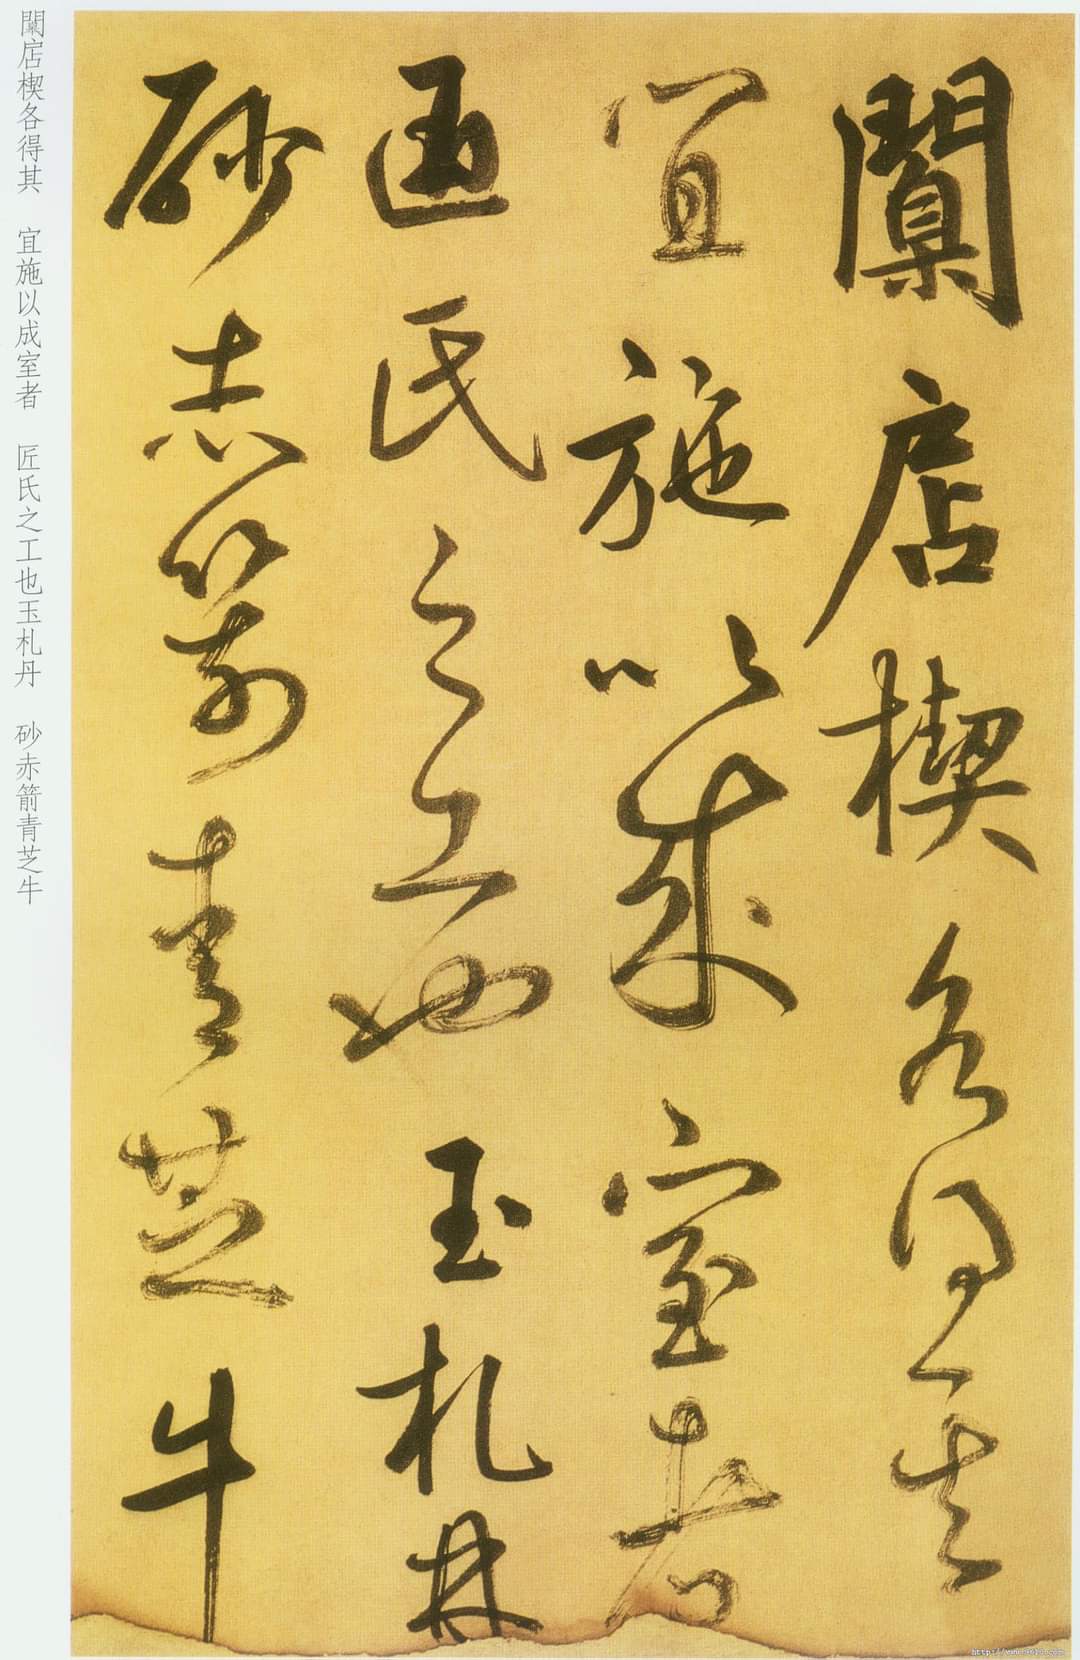 闑扂楔各得其
宜施以成室者
匠氏之工也玉札丹
砂赤箭青芝牛
闑扂楔各得其　宜施以成室者　匠氏之工也玉札丹　砂赤箭青芝牛